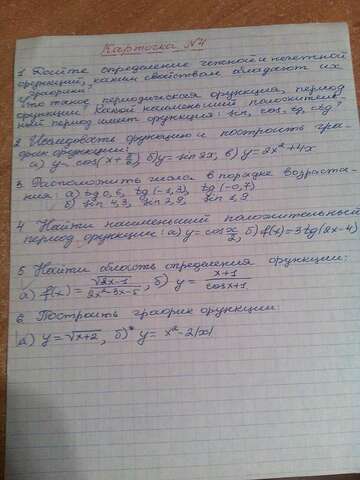 Карточка №4
1 Дайте определение чётной и нечётной
функций, каким свойством обладают их
графики?
Что такое периодическая функция, период
функции? Какой наименьший положитель-
ный период имеет функция: sin, cos, tg, ctg?
2 Исследовать функцию и построить гра-
фик функции:
а) y = cos(x + π/6), б) y = sin 2x, в) y = 2x² + 4x
3 Расположить числа в порядке возраста-
ния: а) tg 0,6, tg (-1,3), tg (-0,7)
б) sin 4,3, sin 2,9, sin 1,9
4 Найти наименьший положительный
период функции: а) y = cos x/2, б) f(x) = 3tg(2x-4)
5 Найти область определения функции:
а) f(x) = √2x-1 / 2x²-3x-5, б) y = x+1 / cosx+1
6 Построить график функции
а) y = √x+2, б)* y = x² - 2|x|